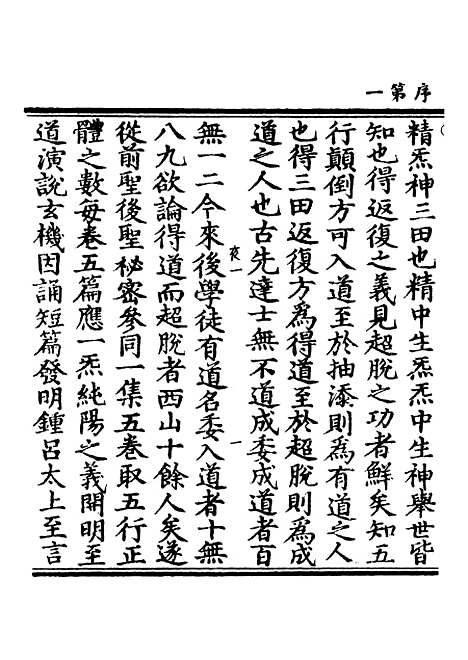 序第一
精炁神三田也精中生炁炁中生神舉世皆
知也得返復之義見超脫之功者鮮矣知五
行顛倒方可入道至於抽添則為有道之人
也得三田返復方為得道至於超脫則為成
道之人也古先達士無不道成委成道者百
無一二今來後學徒有道名委入道者十無
八九欲論得道而超脫者西山十餘人矣遂
從前聖後聖秘密參同一集五卷取五行正
體之數每卷五篇應一炁純陽之義開明至
道演說玄機因誦短篇發明鍾呂太上至言
夜一
一